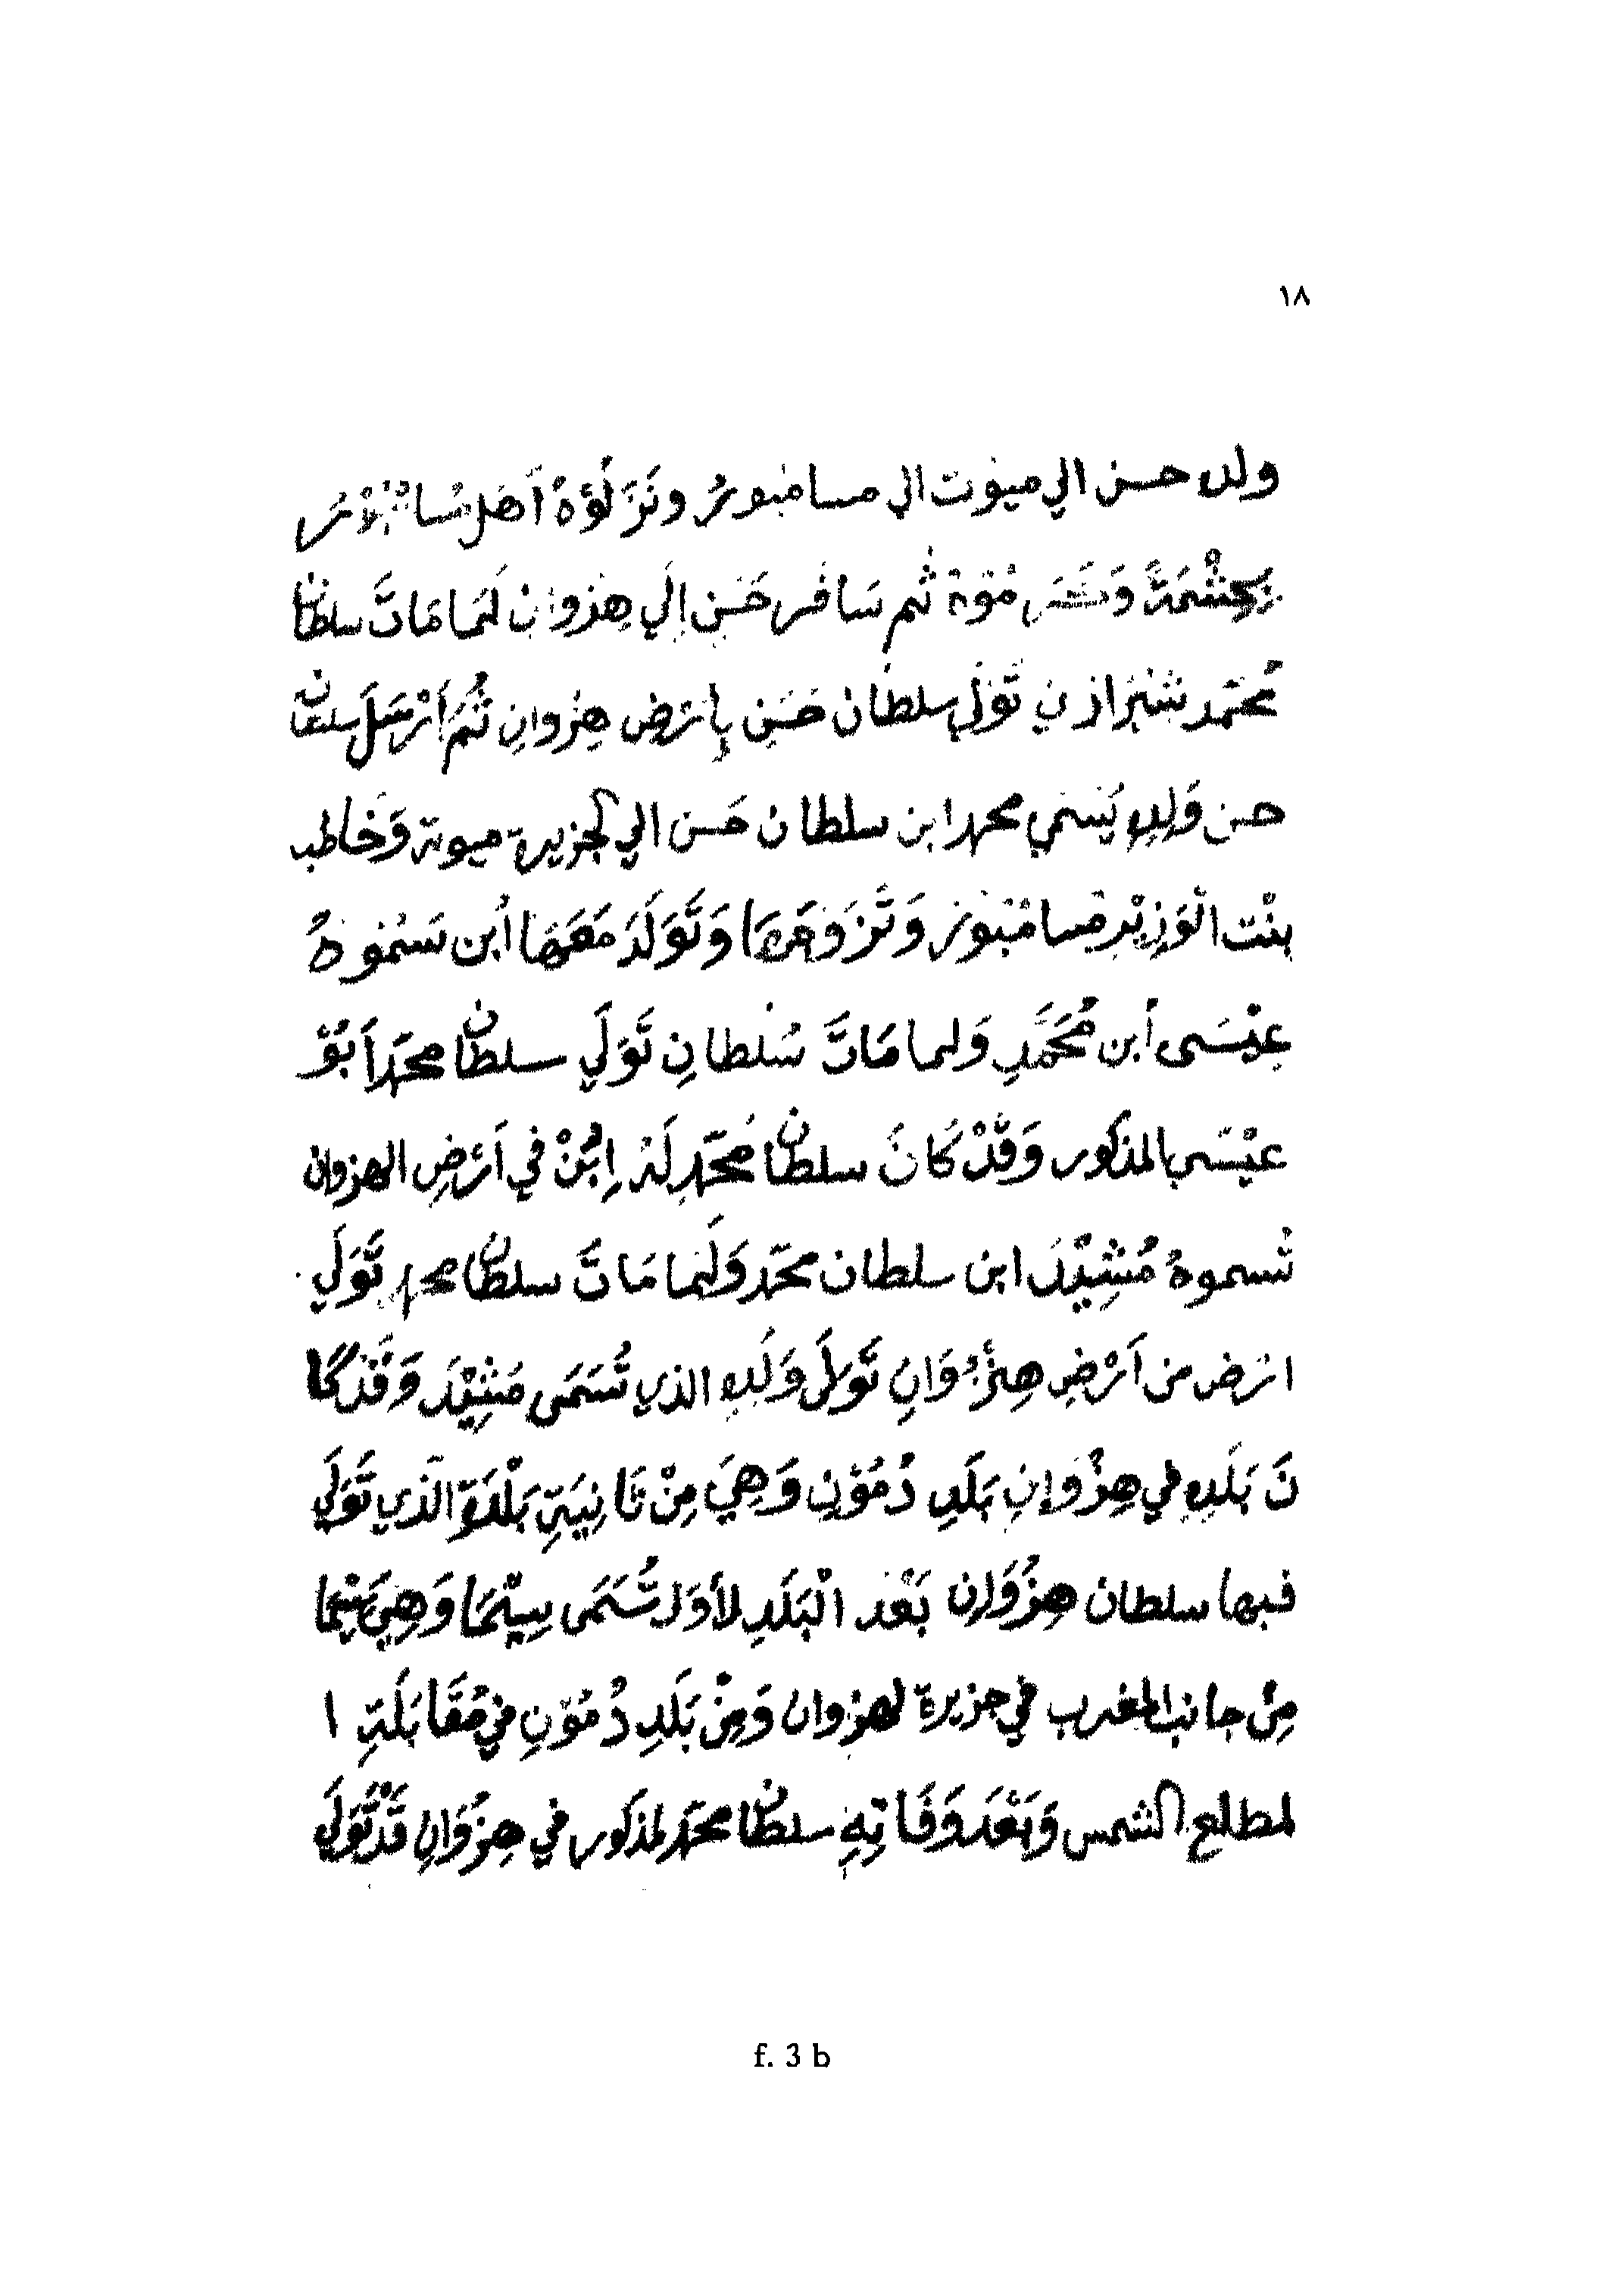 ١٨
ولد حسن الي ميوت الي مسامنبور ونَزَلُوْهُ أهل
بِحِشْمَةٍ وَ مُوَّة ثم سَافَر حَسَنِ إِلَي هِنْزوانِ لَمَا مَاتَ سلطان
مُحَمَّد شِيْرازي تَوَلَي سلطان حَسَنِ بِارَضِ هِنْزوانِ ثُمَّ اَرْسَلَ سلطان
حسن وَلَدِهِ يَسْمَي محمد ابن سلطان حَسَن الي الجزيرة ميوتة وَخَاطب
بِنْت الْوَزِيْر مسامُنْبُوْر وَتَزَوَّجَهَا وَتَوَلَدَ مَعَهَا اُبن تَسْمُوهُ
عِيْسَى اُبن مُحَمَّدِ وَلما مَاتَ سُلطانِ تَوَلَي سلطان محمد اَبُوْ
عيْسَي المذكور وَقَدْ كَانَ سلطان مُحَمَّدِ لَهُ اِبْنُ في اَرَضِ الهنزوان
تُسموهُ مُشِيْدَلَ ابن سلطان محمّد وَلَما مَاتَ سلطان محمد تَوَلَي
ارَض من اَرْضِ هِنْزُوَانِ تَوَلَى وَلَدِهِ الذي تُسَمَى مَشِيْدَلَ وَقَدْ كَا
نَ بَلَدِهِ في هِنْزُوَانِ بَلَدِ دُمُوْنِ وَهِيَ مِنْ ثَانِيَةِ بَلْدَةِ الَّذي تَوَلَي
فيها سلطان هِنْزُوَانِ بَعْد الْبَلَدِ لأَوَل تُسَمَى سِيْمَا وَهِيَ سِيْمَا
مِنْ جانب المغرب في جزيرة لهنزوان وَمِنْ بَلَدِ دُمُوْنِ فِي مُقَابَلَةِ ا
لمطلع الشمس وَبَعْدَ وَفَاتِهِ سلطان محمّد لمذكور في هِنْزُوَانِ قَدْ تَوَلَي
f. 3 b